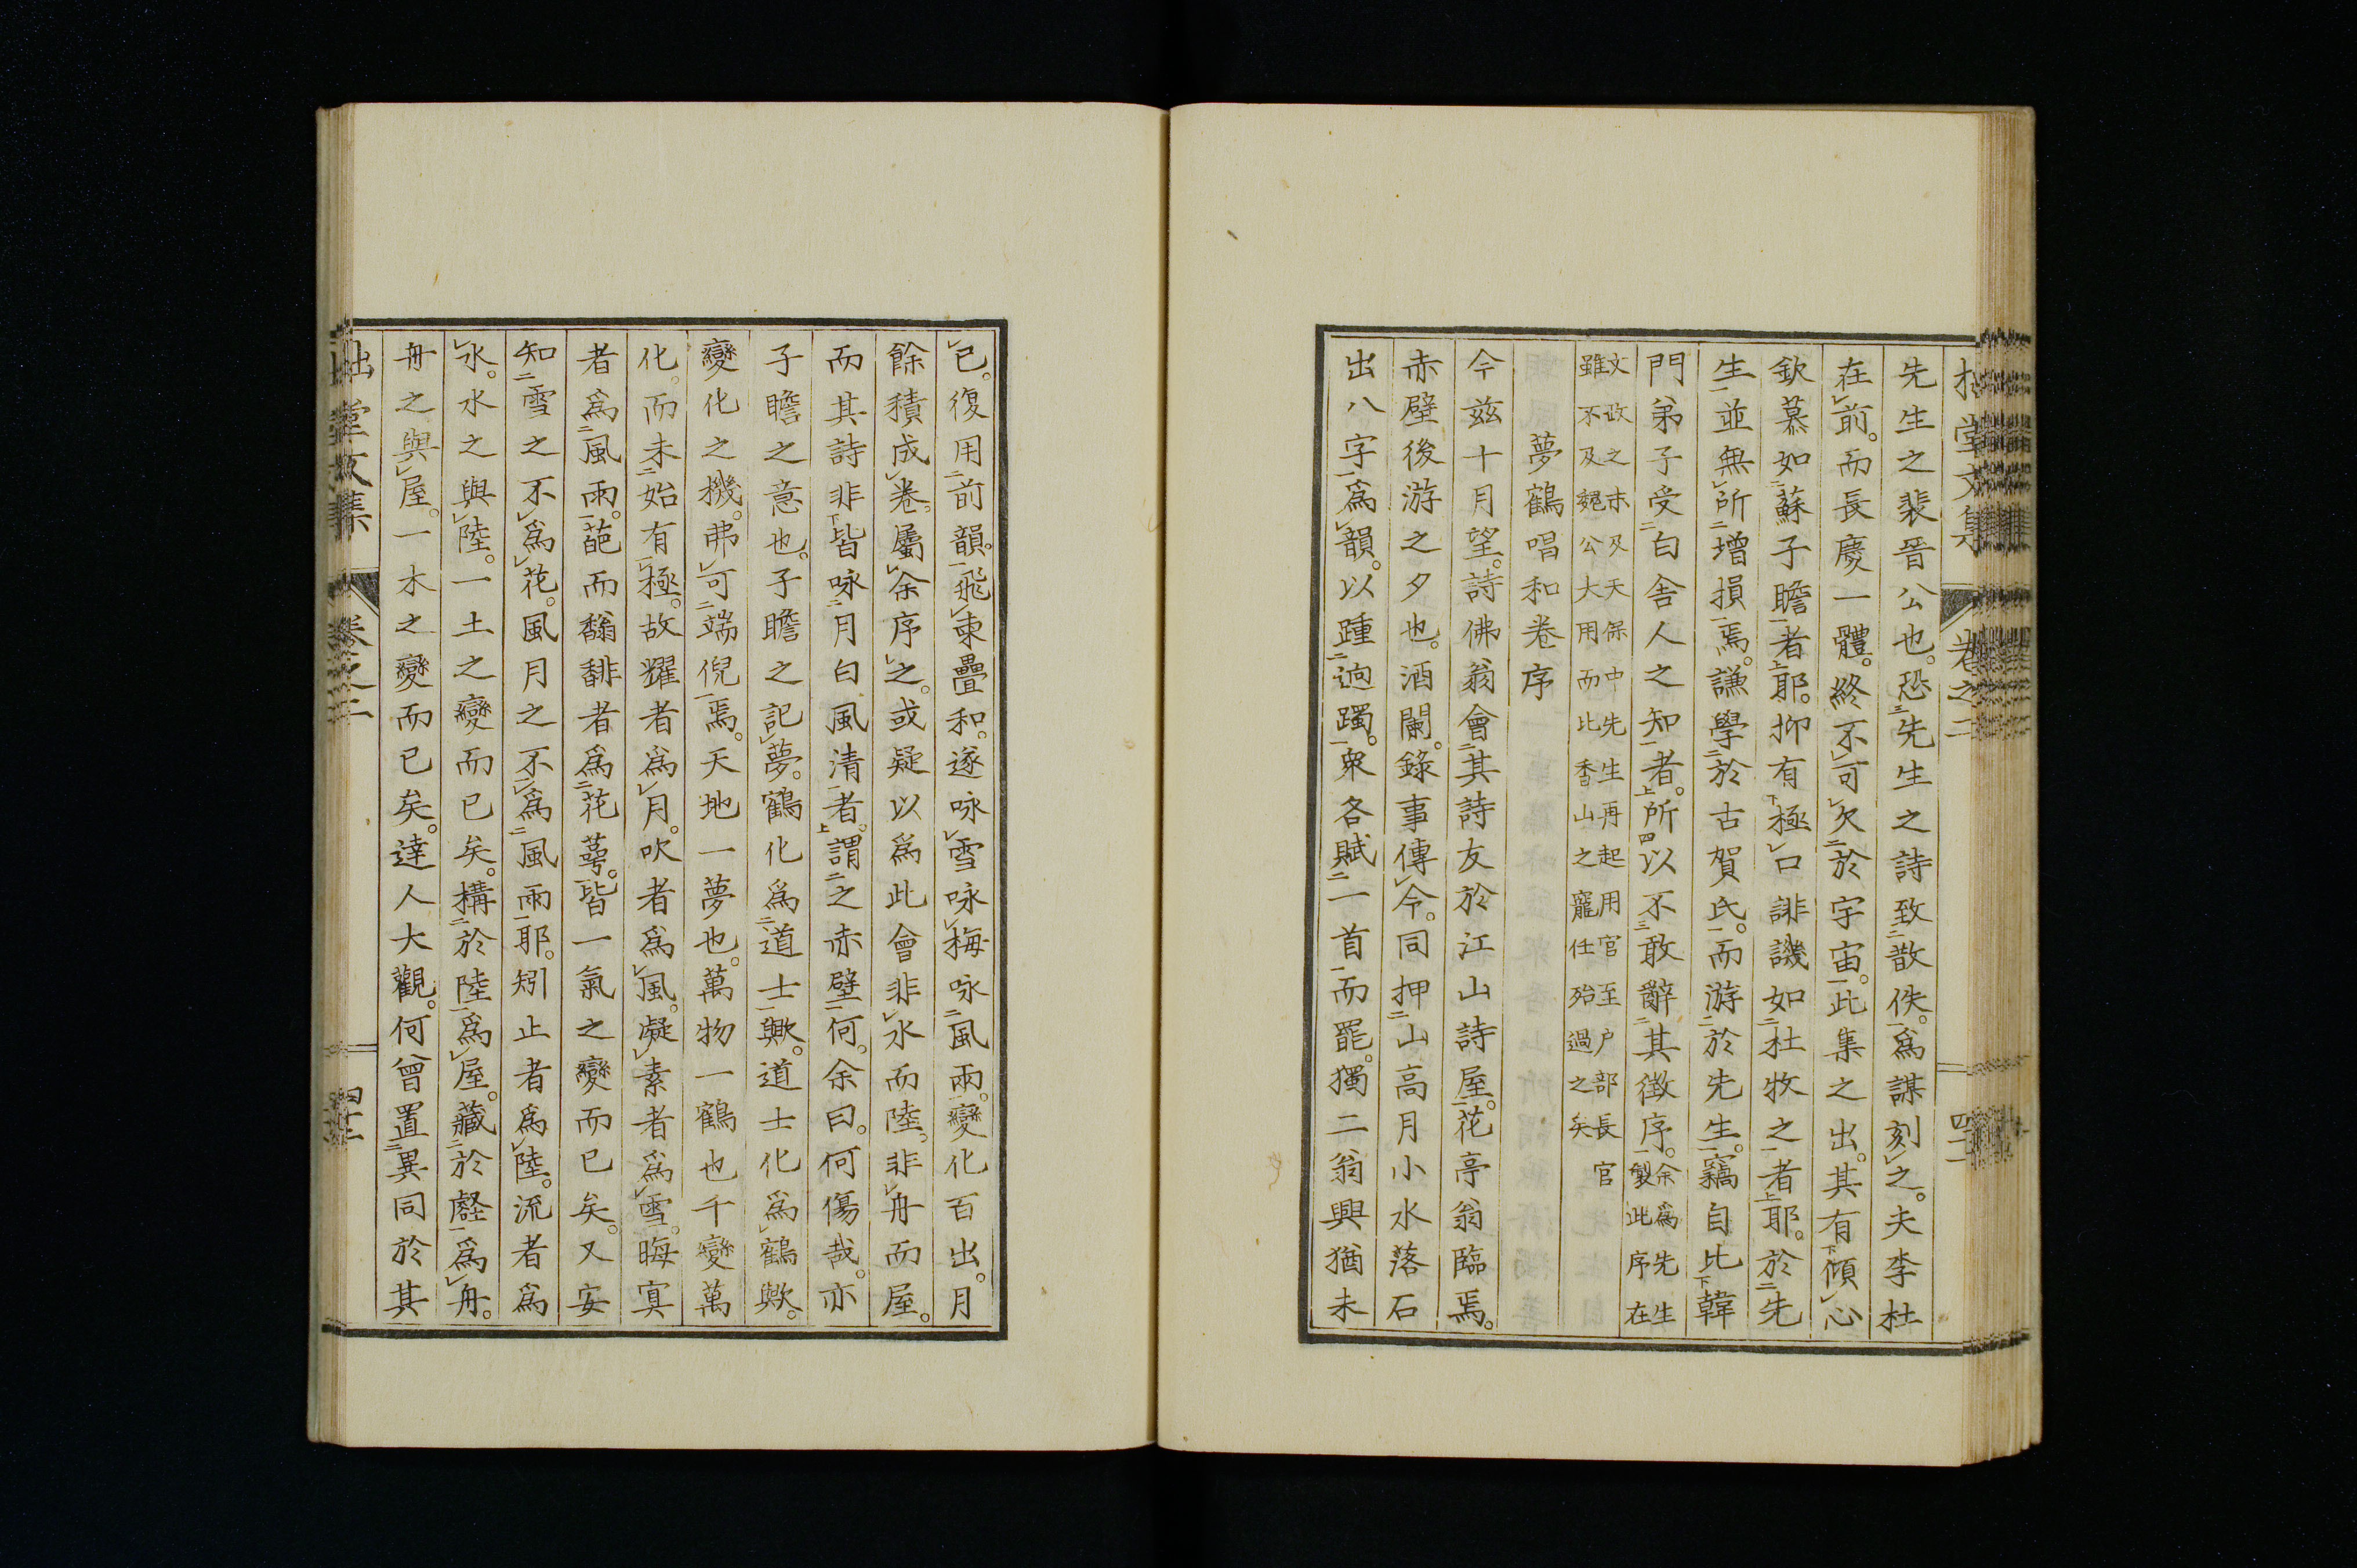 先生之裴晋公也。恐三先生之詩致二散佚一。爲謀刻レ之。夫李杜
在レ前。而長慶一體。終不レ可レ欠二於宇宙一。此集之出。其有下傾レ心
欽慕如二蘇子瞻一者上耶。抑有下極レ口誹譏如二杜牧之一者上耶。於二先
生一並無レ所二增損一焉。謙學二於古賀氏一。而游二於先生一。竊自比下韓
門弟子受二白舍人之知一者上。所四以不三敢辭二其徵序一。余爲先生
製此序在
文政之末及天保中先生再起用官至户部長官
雖不及魏公大用而比香山之寵任殆過之矣
夢鶴唱和卷序
今茲十月望。詩佛翁會二其詩友於江山詩屋一。花亭翁臨焉。
赤壁後游之夕也。酒闌。錄事傳レ令。同押二山高月小水落石
出八字一爲レ韻。以踵二逈躅一。衆各賦二一首一而罷。獨二翁興猶未
レ已。復用二前韻一。飛レ柬疊和。遂咏レ雪咏レ梅咏二風雨一。變化百出。月
餘積成レ卷。屬レ余序レ之。或疑以爲此會非レ水而陸。非レ舟而屋。
而其詩非下皆咏二月白風清一者上。謂二之赤壁一何。余曰。何傷哉。亦
子瞻之意也。子瞻之記レ夢。鶴化爲二道士一歟。道士化爲レ鶴歟。
變化之機。弗レ可二端倪一焉。天地一夢也。萬物一鶴也千變萬
化。而未二始有一レ極。故耀者爲レ月。吹者爲レ風。凝レ素者爲レ雪。晦寞
者爲二風雨一。葩而馡者爲二花萼一。皆一氣之變而已矣。又安
知二雪之不一レ爲レ花。風月之不一レ爲二風雨一耶。矧止者爲レ陸。流者爲
レ水。水之與レ陸。一土之變而已矣。構二於陸一爲レ屋。藏二於壑一爲レ舟。
舟之與レ屋。一木之變而已矣。達人大觀。何曾置二異同於其
拙堂文集 卷之二 四十二
拙堂文集 卷之二